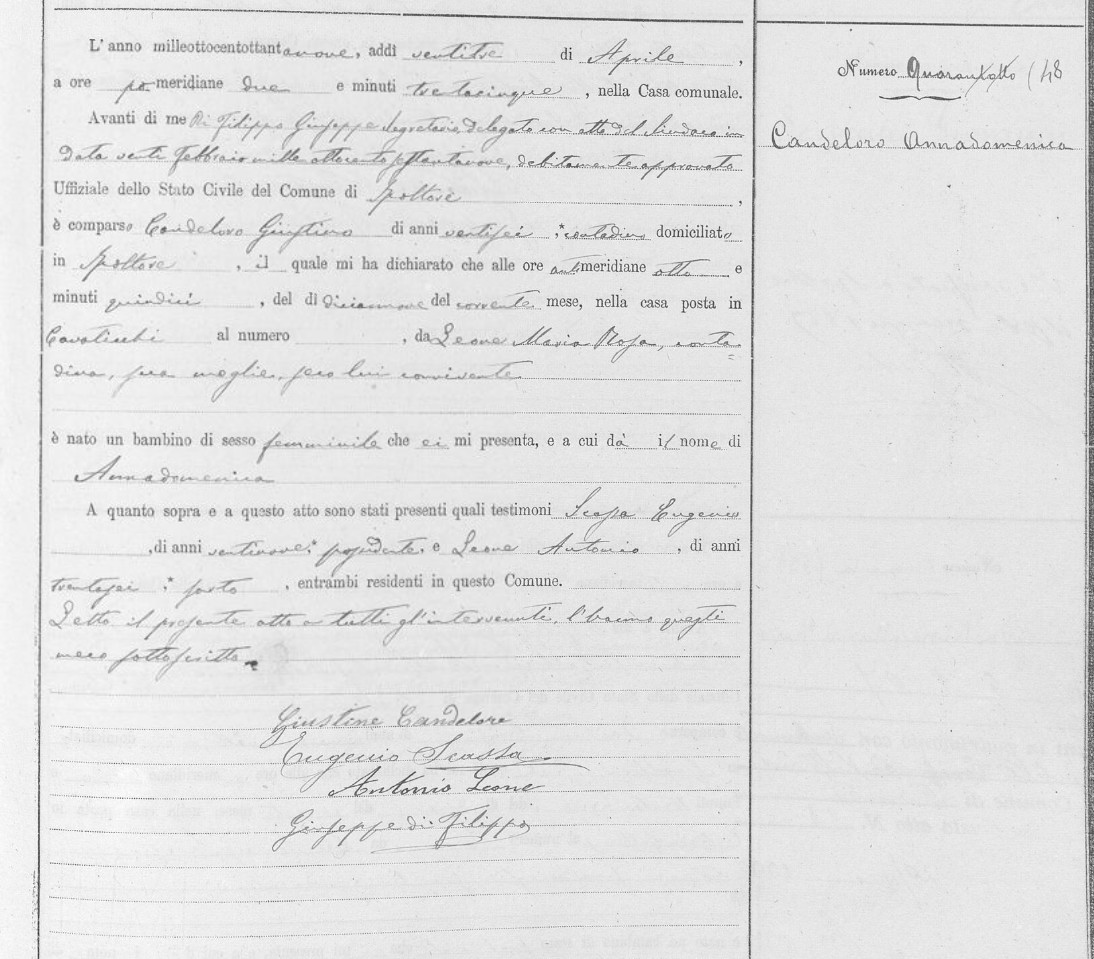 L'anno milleottocentottantanove, addì ventitre di Aprile,
a ore pomeridiane due e minuti trentacinque, nella Casa comunale.
Avanti di me Di Filippo Giuseppe Segretario delegato con atto del Sindaco in
data venti Febbraio mille ottocento settantanove, debitamente approvato
Uffiziale dello Stato Civile del Comune di Spoltore,
è comparso Candeloro Giustino di anni ventisei, contadino domiciliato
in Spoltore, il quale mi ha dichiarato che alle ore antimeridiane otto e
minuti quindici, del dì diciannove del corrente mese, nella casa posta in
Cavaticchi al numero , da Leone Maria Rosa, conta=
dina, sua moglie, seco lui convivente
è nato un bambino di sesso femminile che ei mi presenta, e a cui dà il nome di
Annadomenica
A quanto sopra e a questo atto sono stati presenti quali testimoni Scassa Eugenio
, di anni ventinove, possidente, e Leone Antonio, di anni
trentasei, sarto, entrambi residenti in questo Comune.
Letto il presente atto a tutti gl'intervenuti, l'hanno questi
meco sottoscritto.
Giustino Candeloro
Eugenio Scassa
Antonio Leone
Giuseppe di Filippo
Numero Quarantotto (48
Candeloro Annadomenica